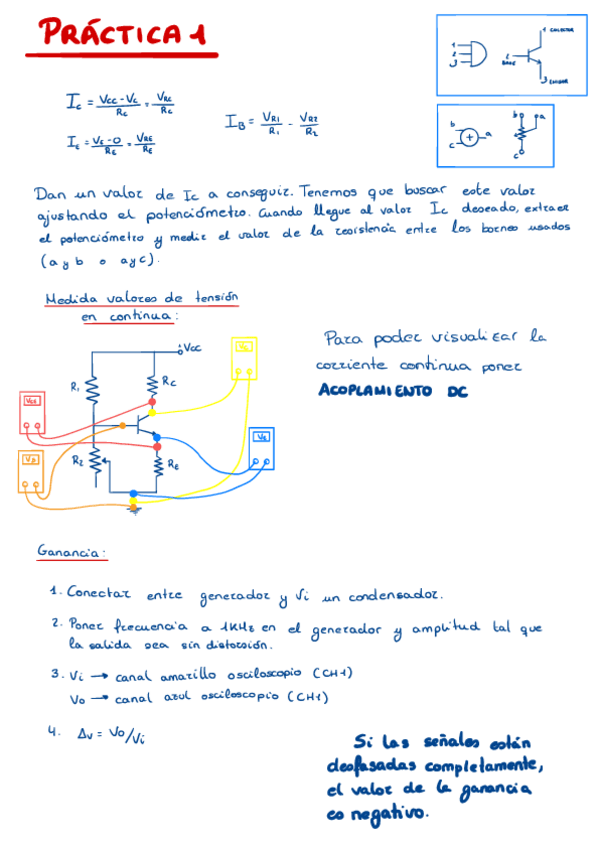 PRÁCTICA 1
1 COLECTOR
1
2
3
2
BASE
3 EMISOR
Ic = Vcc - Vc / Rc = VRc / Rc
IE = VE - 0 / RE = VRE / RE
IB = VR1 / R1 - VR2 / R2
b
a
c
b
a
c
Dan un valor de Ic a conseguir. Tenemos que buscar este valor
ajustando el potenciómetro. Cuando llegue al valor Ic deseado, extraer
el potenciómetro y medir el valor de la resistencia entre los bornes usados
(a y b o a y c).
Medida valores de tensión
en continua:
Para poder visualizar la
corriente continua poner
ACOPLAMIENTO DC
Vcc
R1
Rc
VCE
Vc
VE
VB
R2
RE
Ganancia:
1. Conectar entre generador y Vi un condensador.
2. Poner frecuencia a 1KHz en el generador y amplitud tal que
la salida sea sin distorsión.
3. Vi → canal amarillo osciloscopio (CH1)
Vo → canal azul osciloscopio (CH1)
4. Δv = Vo/Vi
Si las señales están
desfasadas completamente,
el valor de la ganancia
es negativo.